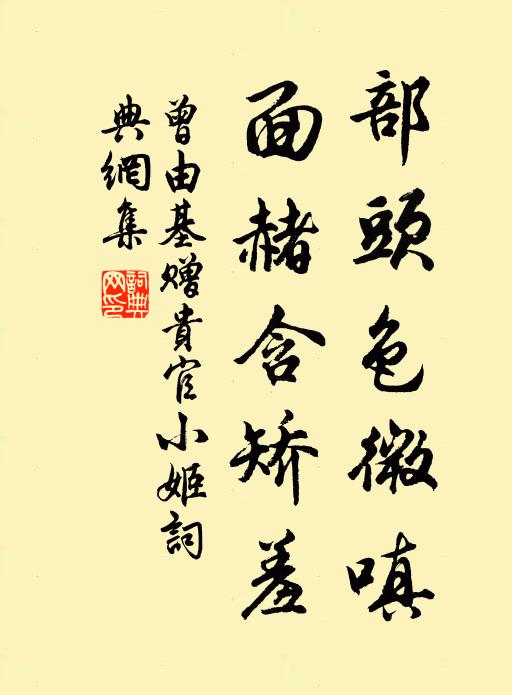 部頭色微嗔
面赭含矯羞
曾由基贈貴官小姬詞
典網集
詞典網印